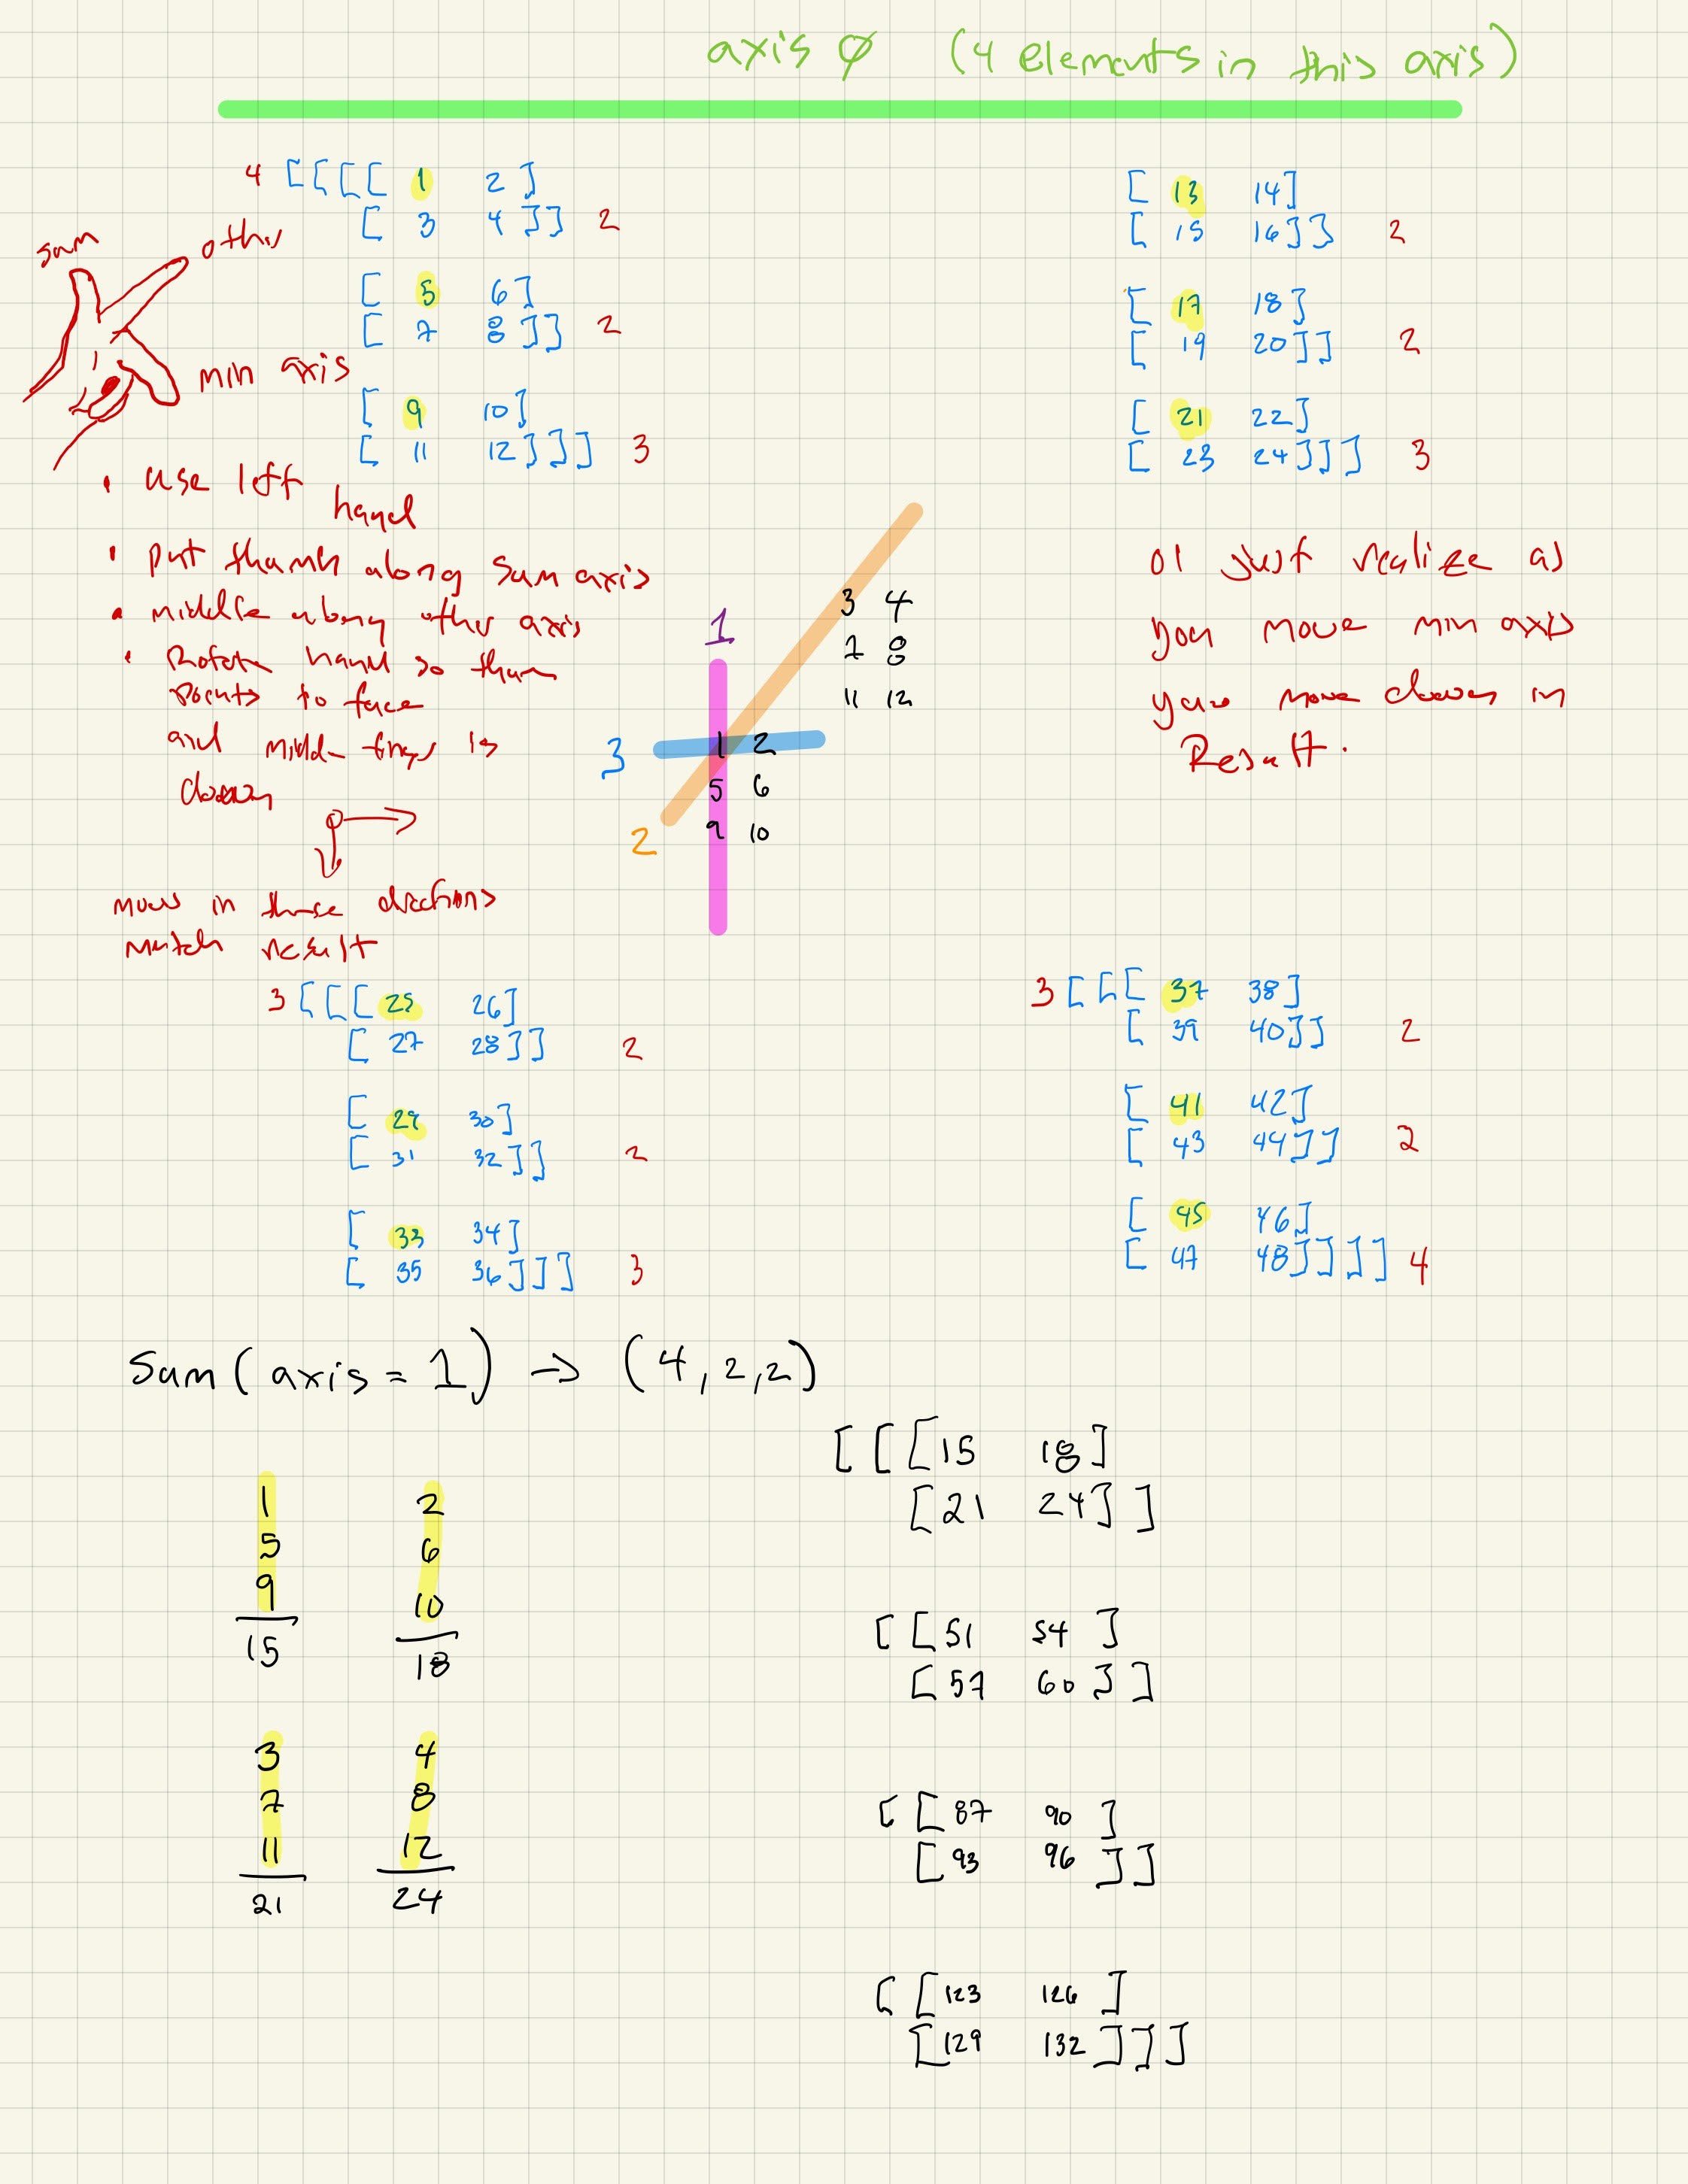 axis ∅ (4 elements in this axis)
4 [[[[ 1 2 ]
[ 3 4 ]] 2
[ 5 6 ]
[ 7 8 ]] 2
[ 9 10 ]
[ 11 12 ]]] 3
[ 13 14 ]
[ 15 16 ]] 2
[ 17 18 ]
[ 19 20 ]] 2
[ 21 22 ]
[ 23 24 ]]] 3
sum
other
min axis
• use left
hand
• put thumb along sum axis
• middle along other axis
• Rotate hand so thum
points to face
and middle finger is
down
move in these directions
match result
1
3 4
7 8
11 12
3
1 2
5 6
9 10
2
or just realize as
you move min axis
you move down in
Result.
3 [[[ 25 26 ]
[ 27 28 ]] 2
[ 29 30 ]
[ 31 32 ]] 2
[ 33 34 ]
[ 35 36 ]]] 3
3 [[[ 37 38 ]
[ 39 40 ]] 2
[ 41 42 ]
[ 43 44 ]] 2
[ 45 46 ]
[ 47 48 ]]]] 4
Sum( axis = 1 ) → (4, 2, 2)
1 2
5 6
9 10
15 18
3 4
7 8
11 12
21 24
[[[ 15 18 ]
[ 21 24 ]]
[[ 51 54 ]
[ 57 60 ]]
[[ 87 90 ]
[ 93 96 ]]
[[ 123 126 ]
[ 129 132 ]]]